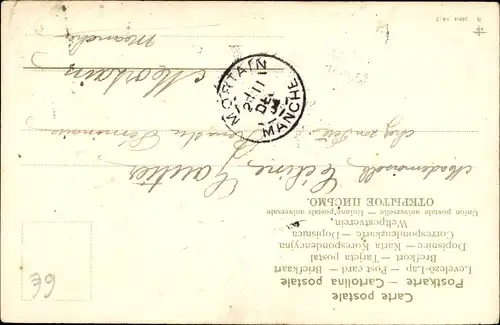 Carte postale
Postkarte — Cartolina postale
Levelező-Lap — Post card — Briefkaart
Brefkort — Tarjeta postal
Dopisnice — Karta Korespondencyjna
Correspondenzkarte — Dopisnica
Weltpostverein.
Union postale universelle — Unione postale universale
ОТКРЫТОЕ ПИСЬМО.
Mademoiselle Céline Gautier
chez son Père
Mortain
Manche
MORTAIN
11
DEC
MANCHE
6€